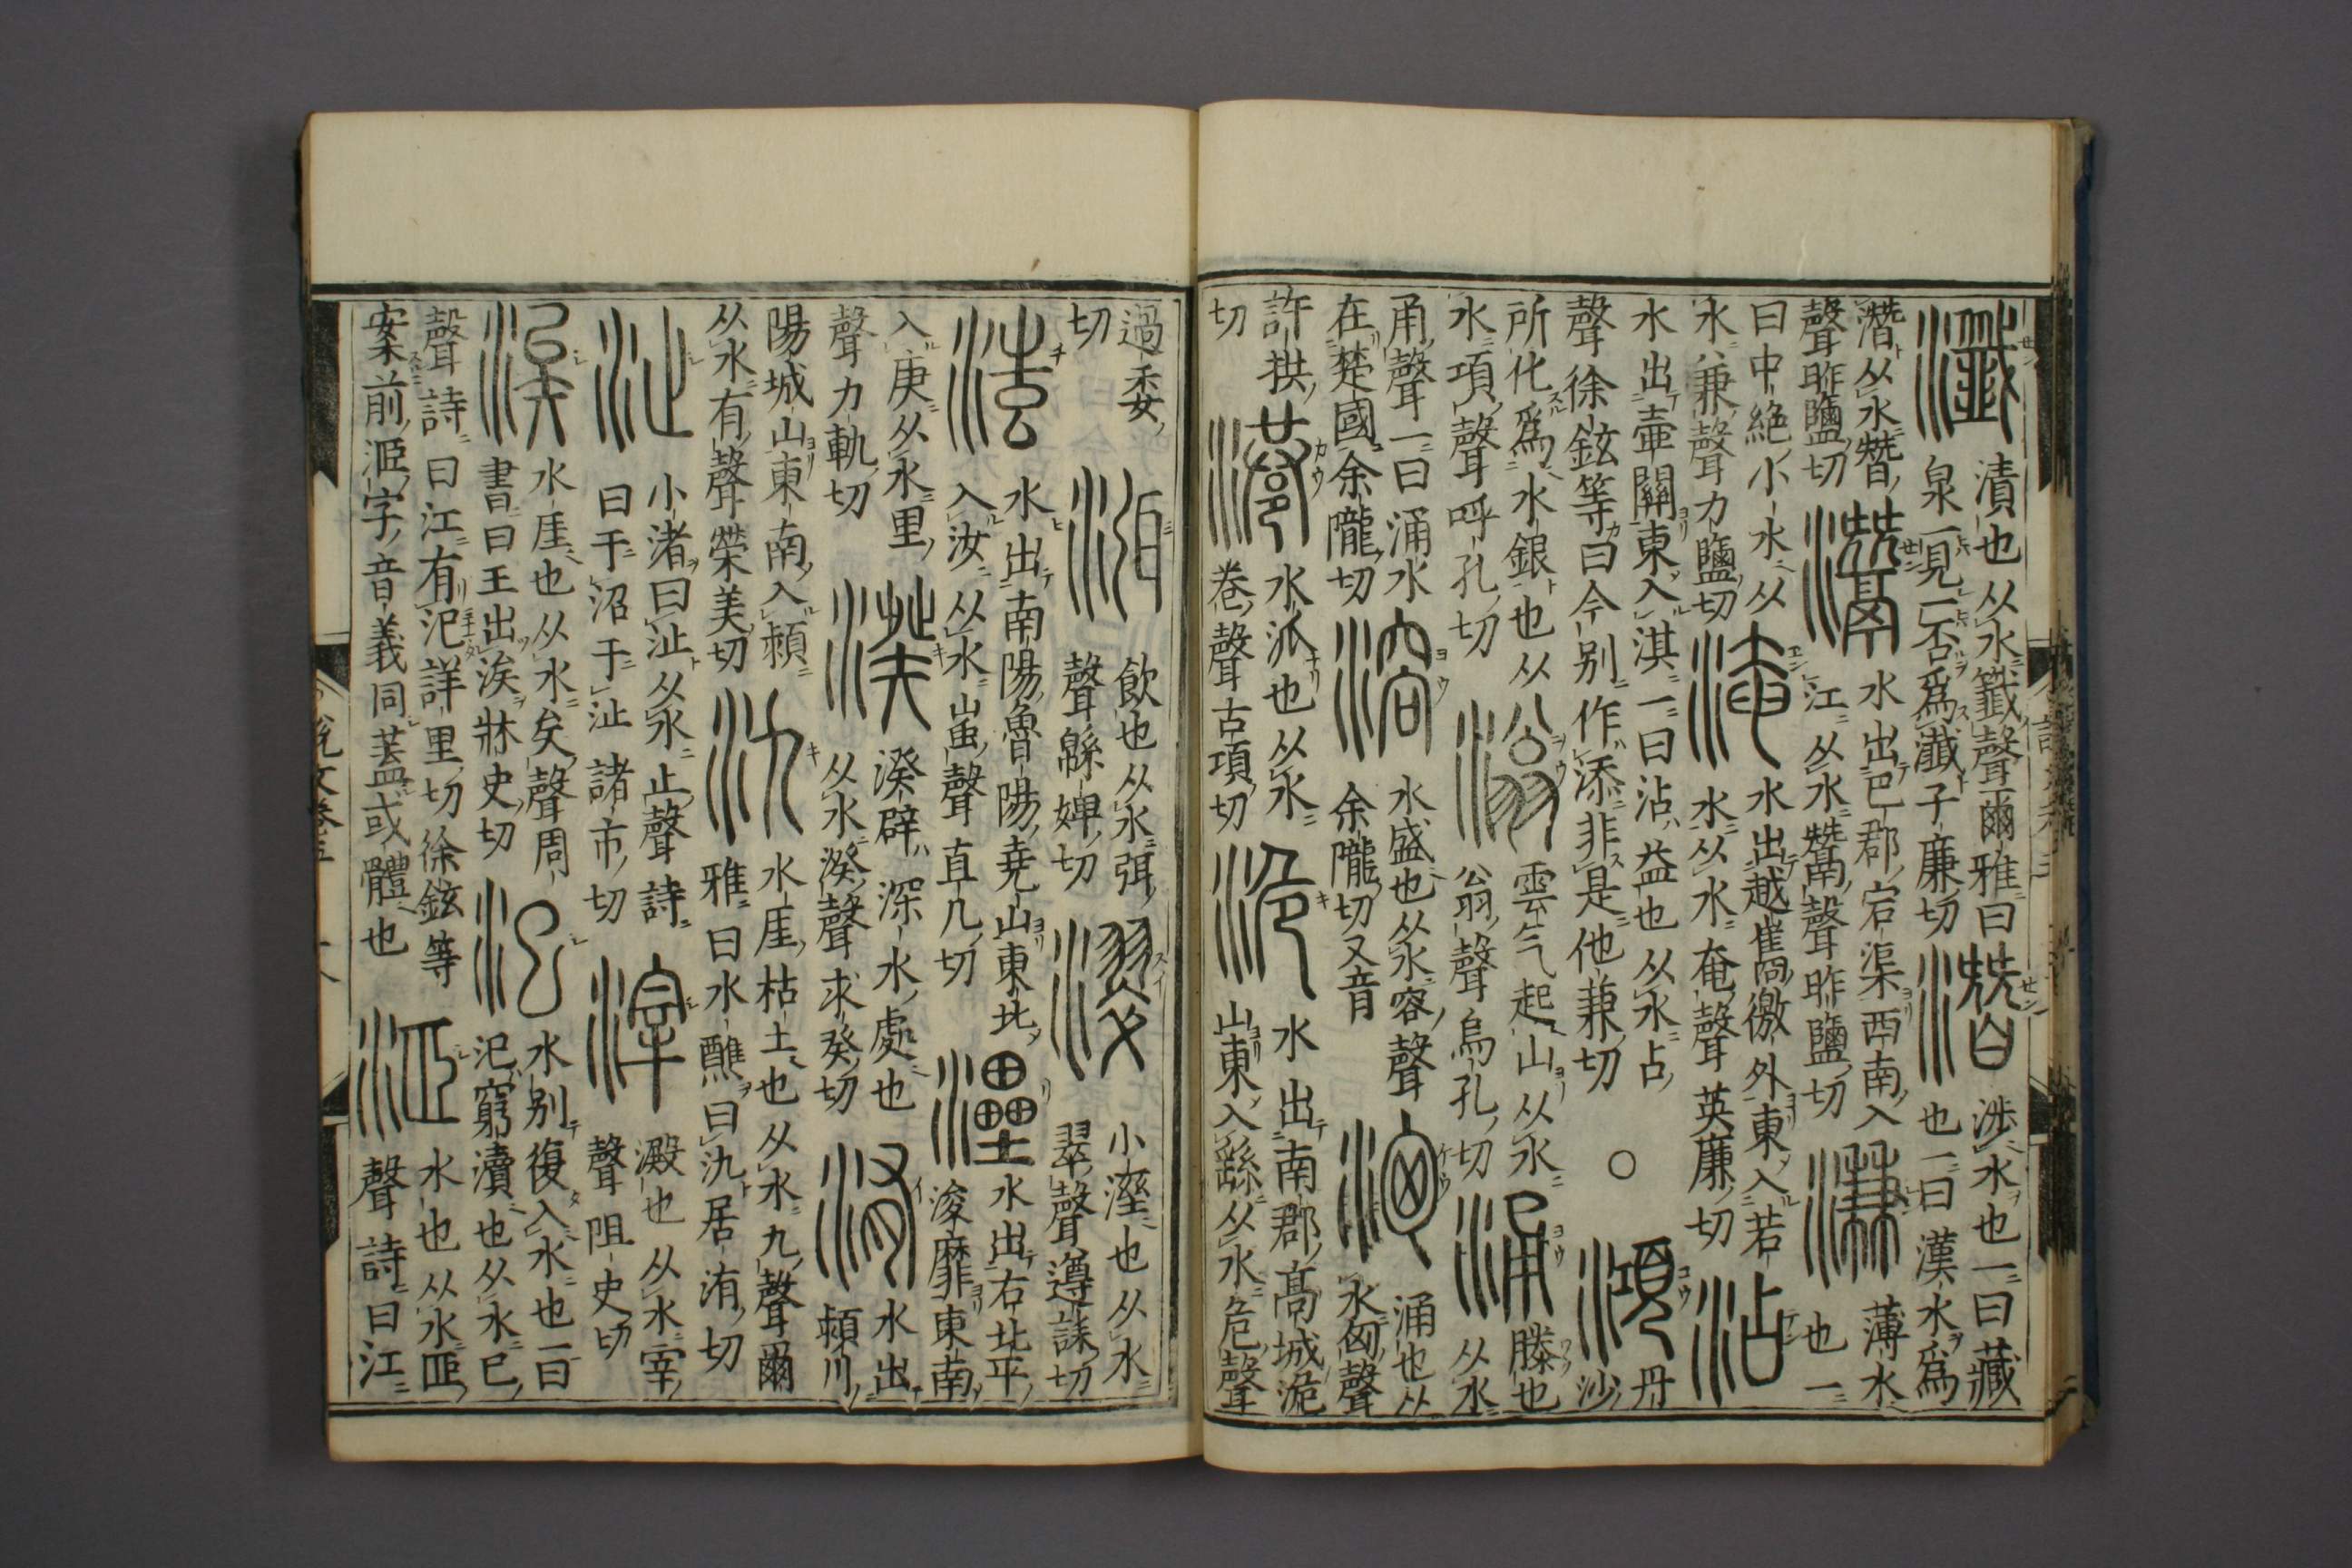 瀸漬也从水韱聲爾雅曰
泉一見一否爲瀸子廉切
潛涉水也一曰藏
也一曰漢水爲
潛从水朁
聲昨鹽切
灊水出巴郡宕渠西南入
江从水鬵聲昨鹽切
溓薄水
也一
曰中絶小水从
水兼聲力鹽切
淹水出越巂徼外東入若
水从水奄聲英廉切
沾
水出壷關東入淇一曰沾益也从水占
聲徐鉉等曰今别作添非是他兼切
○
澒丹
沙
所化爲水銀也从
水項聲呼孔切
滃雲气起山从水
翁聲烏孔切
涌滕也
从水
甬聲一曰涌水
在楚國余隴切
溶水盛也从水容聲
余隴切又音
洶涌也从
水匈聲
許拱
切
港水派也从水
巷聲古項切
洈水出南郡高城洈
山東入繇从水危聲
過委
切
渳飲也从水弭
聲緜婢切
濢小溼也从水
翠聲遵誄切
滍水出南陽魯陽堯山東北
入汝从水蚩聲直几切
灅水出右北平
浚靡東南
入庚从水里
聲力軌切
湀湀辟深水處也
从水癸聲求癸切
洧水出
潁川
陽城山東南入潁
从水有聲榮美切
氿水厓枯土也从水九聲爾
雅曰水醮曰氿居洧切
沚小渚曰沚从水止聲詩
曰于沼于沚諸市切
滓澱也从水宰
聲阻史切
涘水厓也从水矣聲周
書曰王出涘牀史切
汜水别復入水也一曰
汜窮瀆也从水巳
聲詩曰江有汜詳里切徐鉉等
案前洍字音義同蓋或體也
洍水也从水𦣞
聲詩曰江
說文卷五
十八